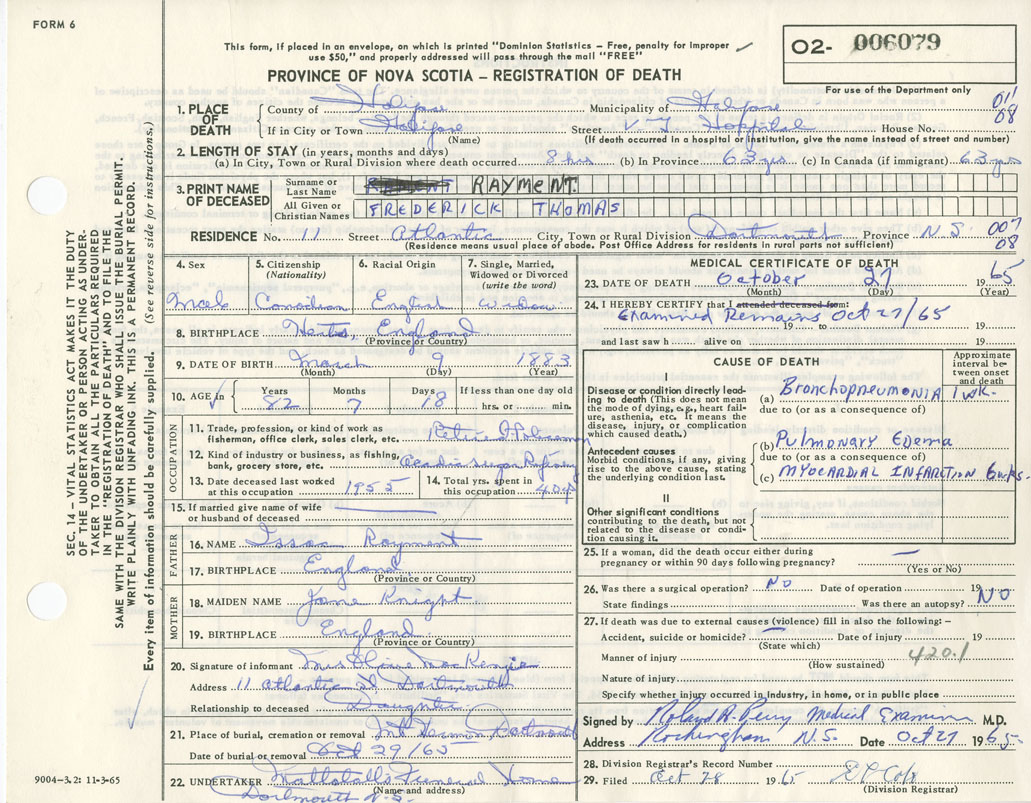 FORM 6
This form, if placed in an envelope, on which is printed "Dominion Statistics – Free, penalty for improper
use $50," and properly addressed will pass through the mail "FREE"
O2- 006079
PROVINCE OF NOVA SCOTIA – REGISTRATION OF DEATH
For use of the Department only
011
08
1. PLACE OF DEATH
County of Halifax Municipality of Halifax
If in City or Town Halifax Street V. G. Hospital House No.
(Name) (If death occurred in a hospital or institution, give the name instead of street and number)
2. LENGTH OF STAY (in years, months and days)
(a) In City, Town or Rural Division where death occurred 8 hrs (b) In Province 63 yrs (c) In Canada (if immigrant) 63 yrs
3. PRINT NAME OF DECEASED
Surname or Last Name RAYMENT.
All Given or Christian Names FREDERICK THOMAS
RESIDENCE No. 11 Street Atlantic City, Town or Rural Division Dartmouth Province N.S. 007
08
(Residence means usual place of abode. Post Office Address for residents in rural parts not sufficient)
4. Sex 5. Citizenship (Nationality) 6. Racial Origin 7. Single, Married, Widowed or Divorced (write the word)
Male Canadian English Widow
8. BIRTHPLACE Herts, England
(Province or Country)
9. DATE OF BIRTH March 9 1883
(Month) (Day) (Year)
10. AGE in Years Months Days If less than one day old
82 7 18 hrs. or min.
OCCUPATION
11. Trade, profession or kind of work as fisherman, office clerk, sales clerk, etc. Retired Policeman
12. Kind of industry or business, as fishing, bank, grocery store, etc. Acadia Sugar Refinery
13. Date deceased last worked at this occupation 1955
14. Total yrs. spent in this occupation 40 yrs
15. If married give name of wife or husband of deceased
FATHER
16. NAME Issac Rayment
17. BIRTHPLACE England
(Province or Country)
MOTHER
18. MAIDEN NAME Jane Knight
19. BIRTHPLACE England
(Province or Country)
20. Signature of informant Mrs Olive MacKenzie
Address 11 Atlantic St Dartmouth
Relationship to deceased Daughter
21. Place of burial, cremation or removal Mt Hermon Dartmouth
Date of burial or removal Oct 29/65
22. UNDERTAKER Wallatall's Funeral Home
(Name and address)
Dartmouth N.S.
MEDICAL CERTIFICATE OF DEATH
23. DATE OF DEATH October 27 1965
(Month) (Day) (Year)
24. I HEREBY CERTIFY that I attended deceased from:
Examined Remains Oct 27/65
19 to 19
and last saw h alive on 19
CAUSE OF DEATH
Approximate interval between onset and death
I
Disease or condition directly leading to death (This does not mean the mode of dying, e.g., heart failure, asthenia, etc. It means the disease, injury, or complication which caused death.)
(a) Bronchopneumonia 1 wk.
due to (or as a consequence of)
Antecedent causes
Morbid conditions, if any, giving rise to the above cause, stating the underlying condition last.
(b) Pulmonary Edema
due to (or as a consequence of)
(c) MYOCARDIAL INFARTION 6 wks.
II
Other significant conditions contributing to the death, but not related to the disease or condition causing it.
25. If a woman, did the death occur either during pregnancy or within 90 days following pregnancy? —
(Yes or No)
26. Was there a surgical operation? NO Date of operation 19
State findings Was there an autopsy? NO
27. If death was due to external causes (violence) fill in also the following: –
Accident, suicide or homicide? Date of injury 19
(State which)
Manner of injury 420.1
(How sustained)
Nature of injury
Specify whether injury occurred in industry, in home, or in public place
Signed by Roland A. Perry Medical Examiner M.D.
Address Rockingham N.S. Date Oct 27 1965
28. Division Registrar's Record Number
29. Filed Oct 28 1965
(Division Registrar)
SEC. 14 – VITAL STATISTICS ACT MAKES IT THE DUTY
OF THE UNDERTAKER OR PERSON ACTING AS UNDER-
TAKER TO OBTAIN ALL THE PARTICULARS REQUIRED
IN THE "REGISTRATION OF DEATH" AND TO FILE THE
SAME WITH THE DIVISION REGISTRAR WHO SHALL ISSUE THE BURIAL PERMIT.
WRITE PLAINLY WITH UNFADING INK. THIS IS A PERMANENT RECORD.
Every item of information should be carefully supplied. (See reverse side for instructions.)
9004-3.2: 11-3-65